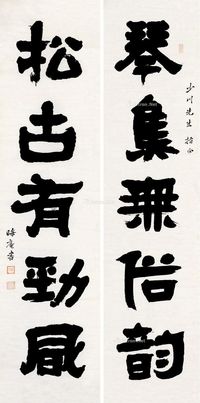 琴集無俗韵
少川先生指正
松古有勁風
晦庵書